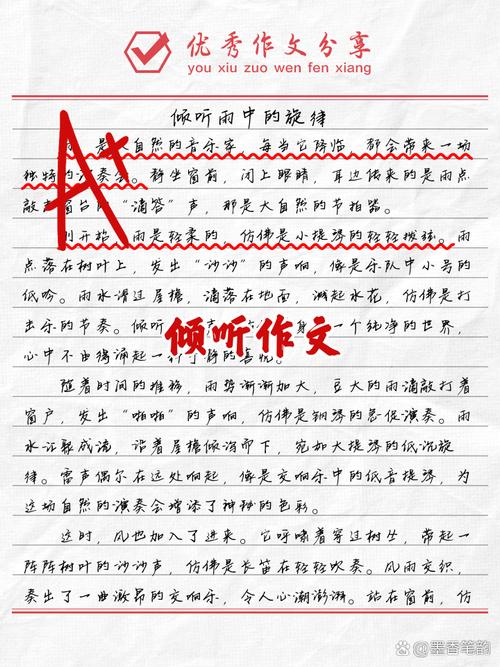 优秀作文分享
you xiu zuo wen fen xiang
倾听雨中的旋律
是大自然的音乐家，每当它降临，都会带来一场
独特的演奏会。静坐窗前，闭上眼睛，耳边传来的是雨点
敲声窗台的“滴答”声，那是大自然的节拍器。
刚开始，雨是轻柔的，仿佛是小提琴的轻轻拨弦。雨
点落在树叶上，发出“沙沙”的声响，像是乐队中小号的
低吟。雨水滑过屋檐，滴落在地面，溅起水花，仿佛是打
击乐的节奏。倾听 声 身 一个纯净的世界，
心中不由得涌起一种宁静的喜悦。
倾听作文
随着时间的推移，雨势渐渐加大，豆大的雨滴敲打着
窗户，发出“啪啪”的声响，仿佛是钢琴的急促演奏。雨
水汇聚成流，沿着屋檐倾泻而下，宛如大提琴的低沉旋
律。雷声偶尔在远处响起，像是交响乐中的低音提琴，为
这场自然的演奏会增添了神秘的色彩。
这时，风也加入了进来。它呼啸着穿过树丛，带起一
阵阵树叶的沙沙声，仿佛是长笛在轻轻吹奏。风雨交织，
奏出了一曲激昂的交响乐，令人心潮澎湃。站在窗前，仿
A+
@墨香笔韵